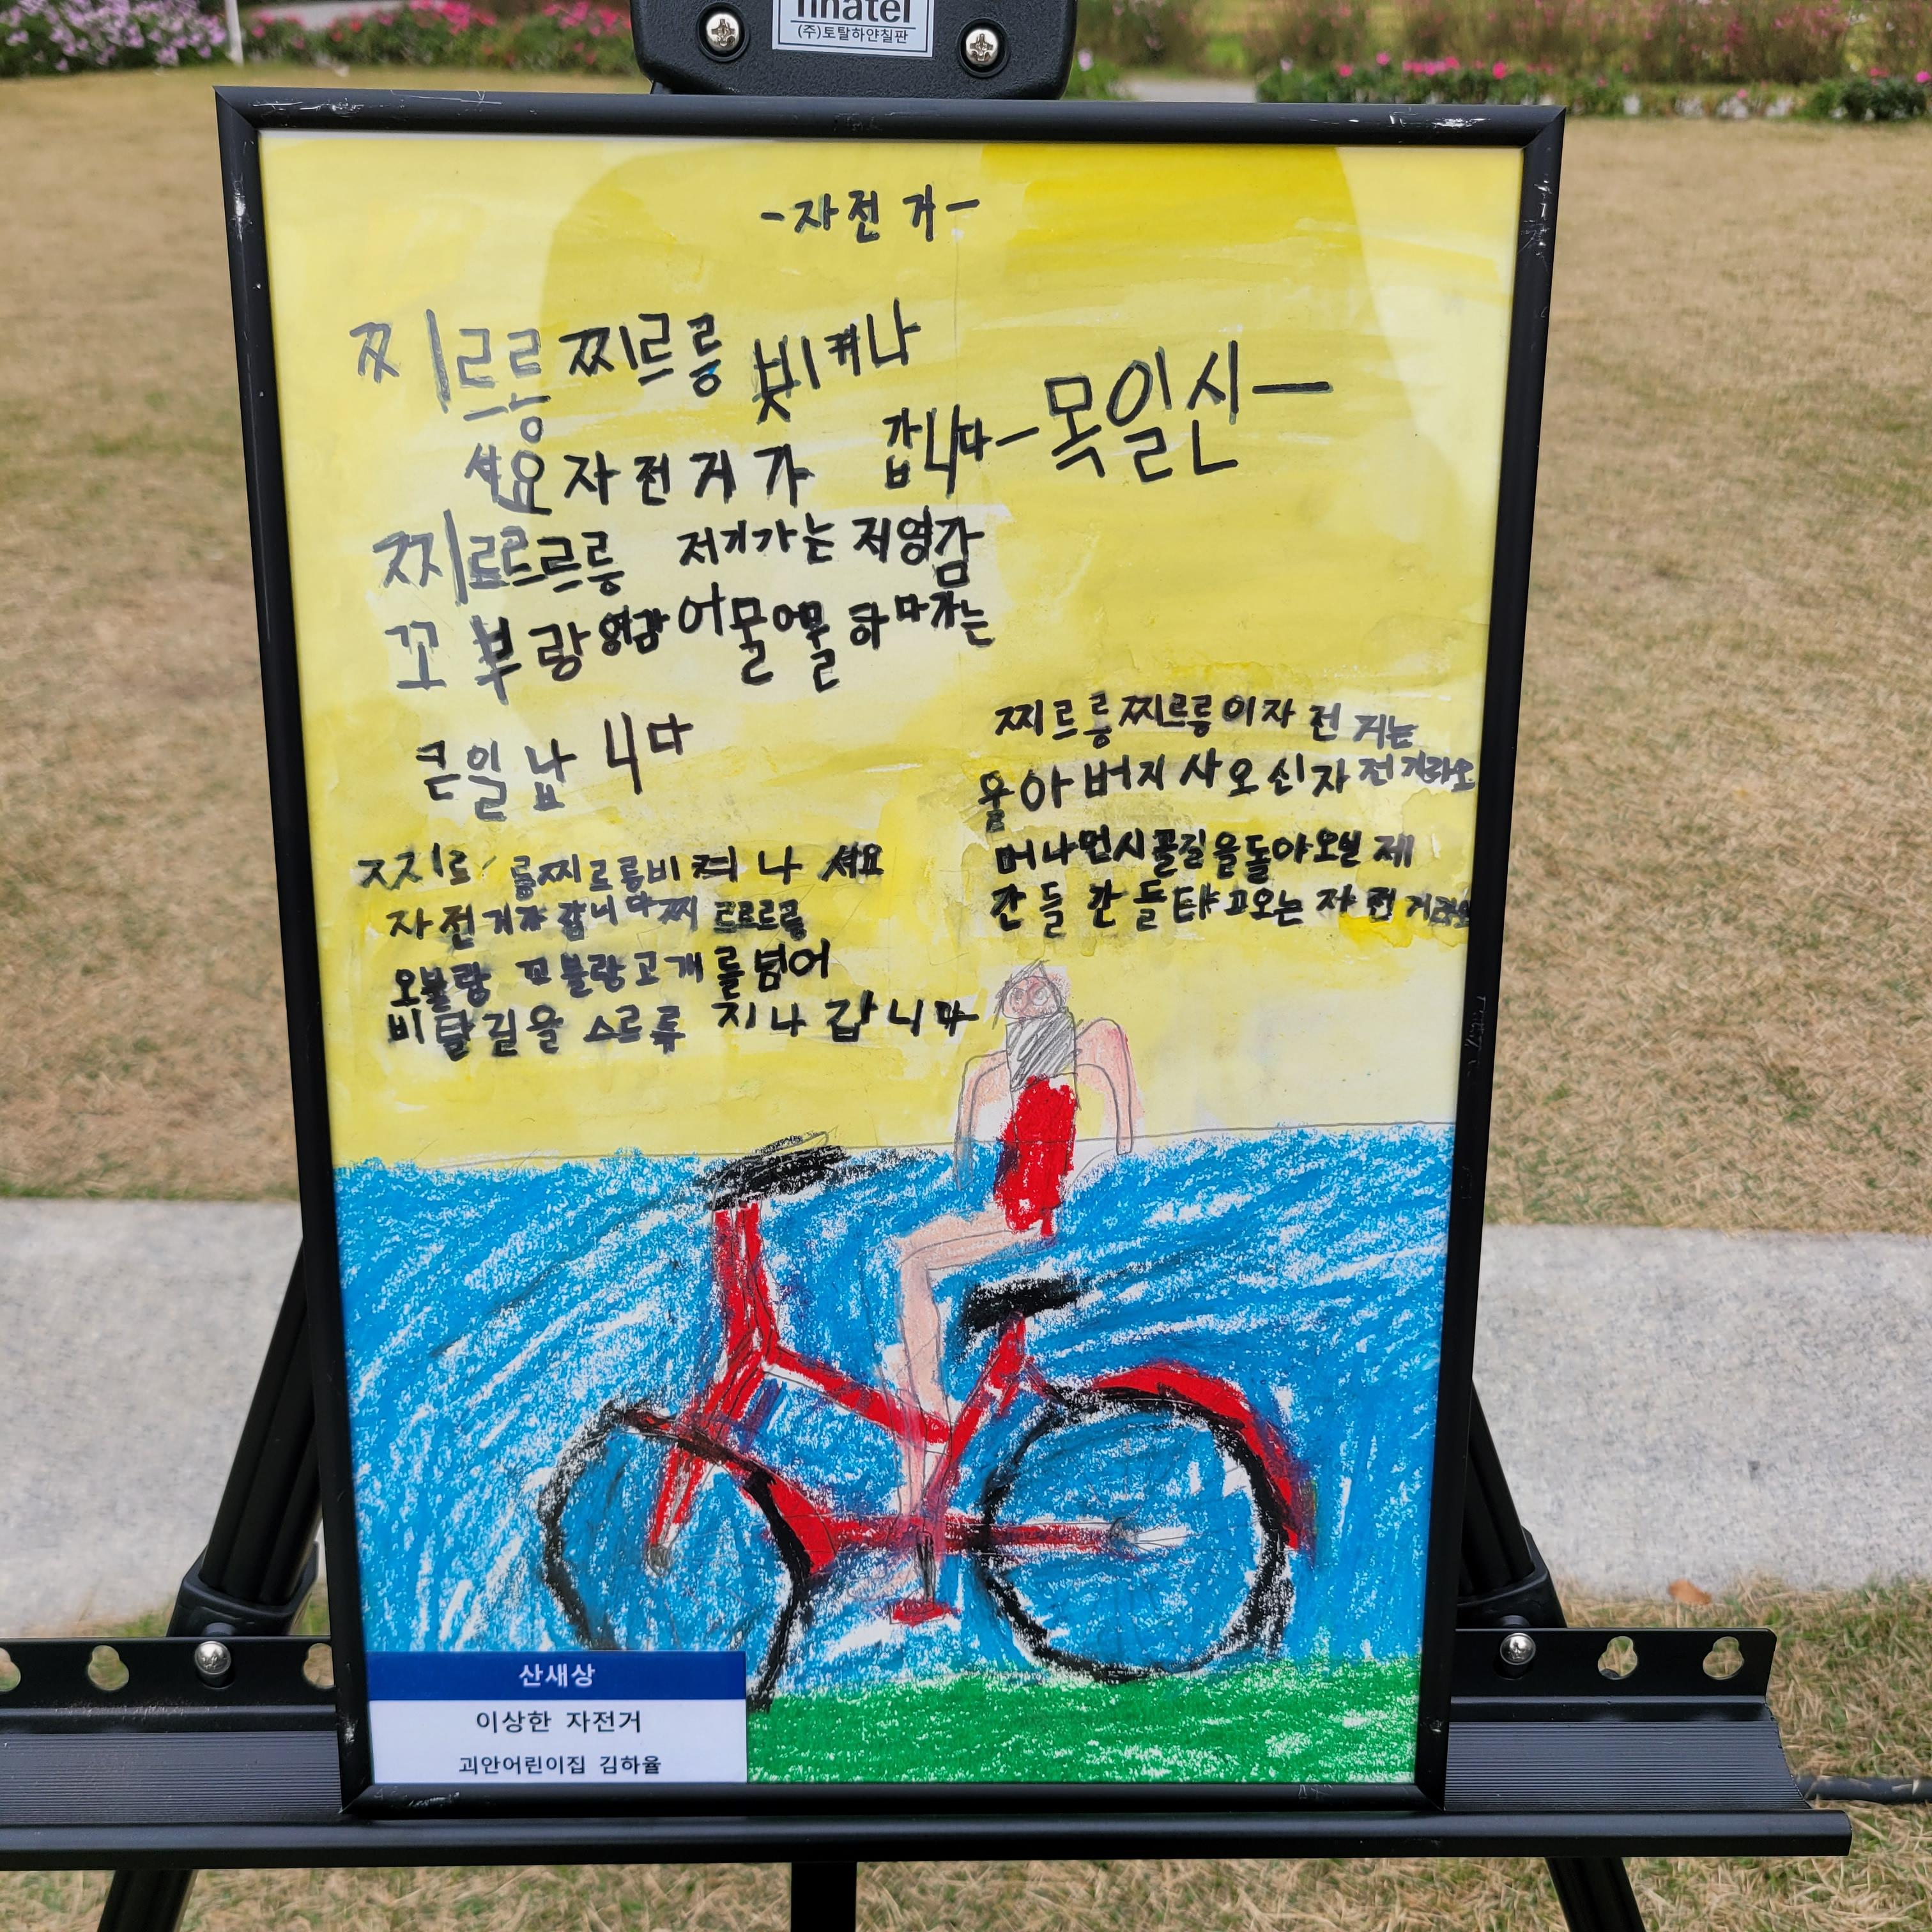 (주)토탈하얀칠판
-자전거-
찌르릉 찌르릉 빗켜나
셔요 자전거가 갑니다
-목일신-
찌르르르릉 저기가는 저영감
꼬부랑영감 어물어물 하다가는
큰일 납니다
찌르릉찌르릉이자전거는
울아버지사오신자전거라오
머나먼시골길을돌아오실 제
간들 간들타고오는 자전거라오
찌르릉찌르릉비켜나 셔요
자전거가 갑니다찌르르르릉
오불랑 꼬불랑고개를넘어
비탈길을 스르륵 지나갑니다
산새상
이상한 자전거
괴안어린이집 김하율